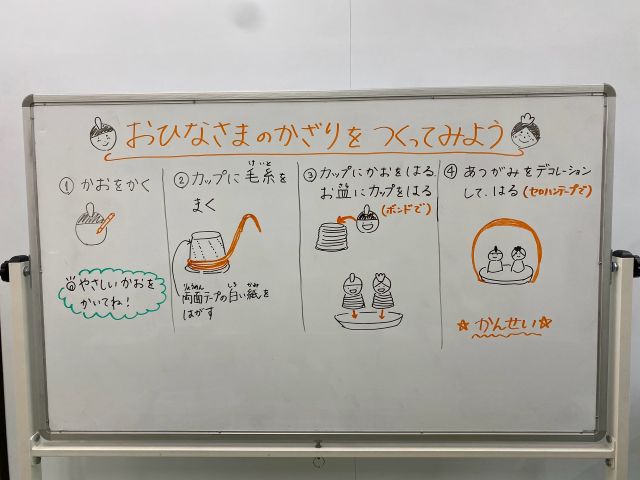 おひなさまのかざりをつくってみよう
① かおをかく
やさしいかおを
かいてね！
② カップに毛糸を
けいと
まく
りょうめん しろ かみ
両面テープの白い紙を
はがす
③ カップにかおをはる
お皿にカップをはる
(ボンドで)
④ あつがみをデコレーション
して、はる(セロハンテープで)
☆かんせい☆